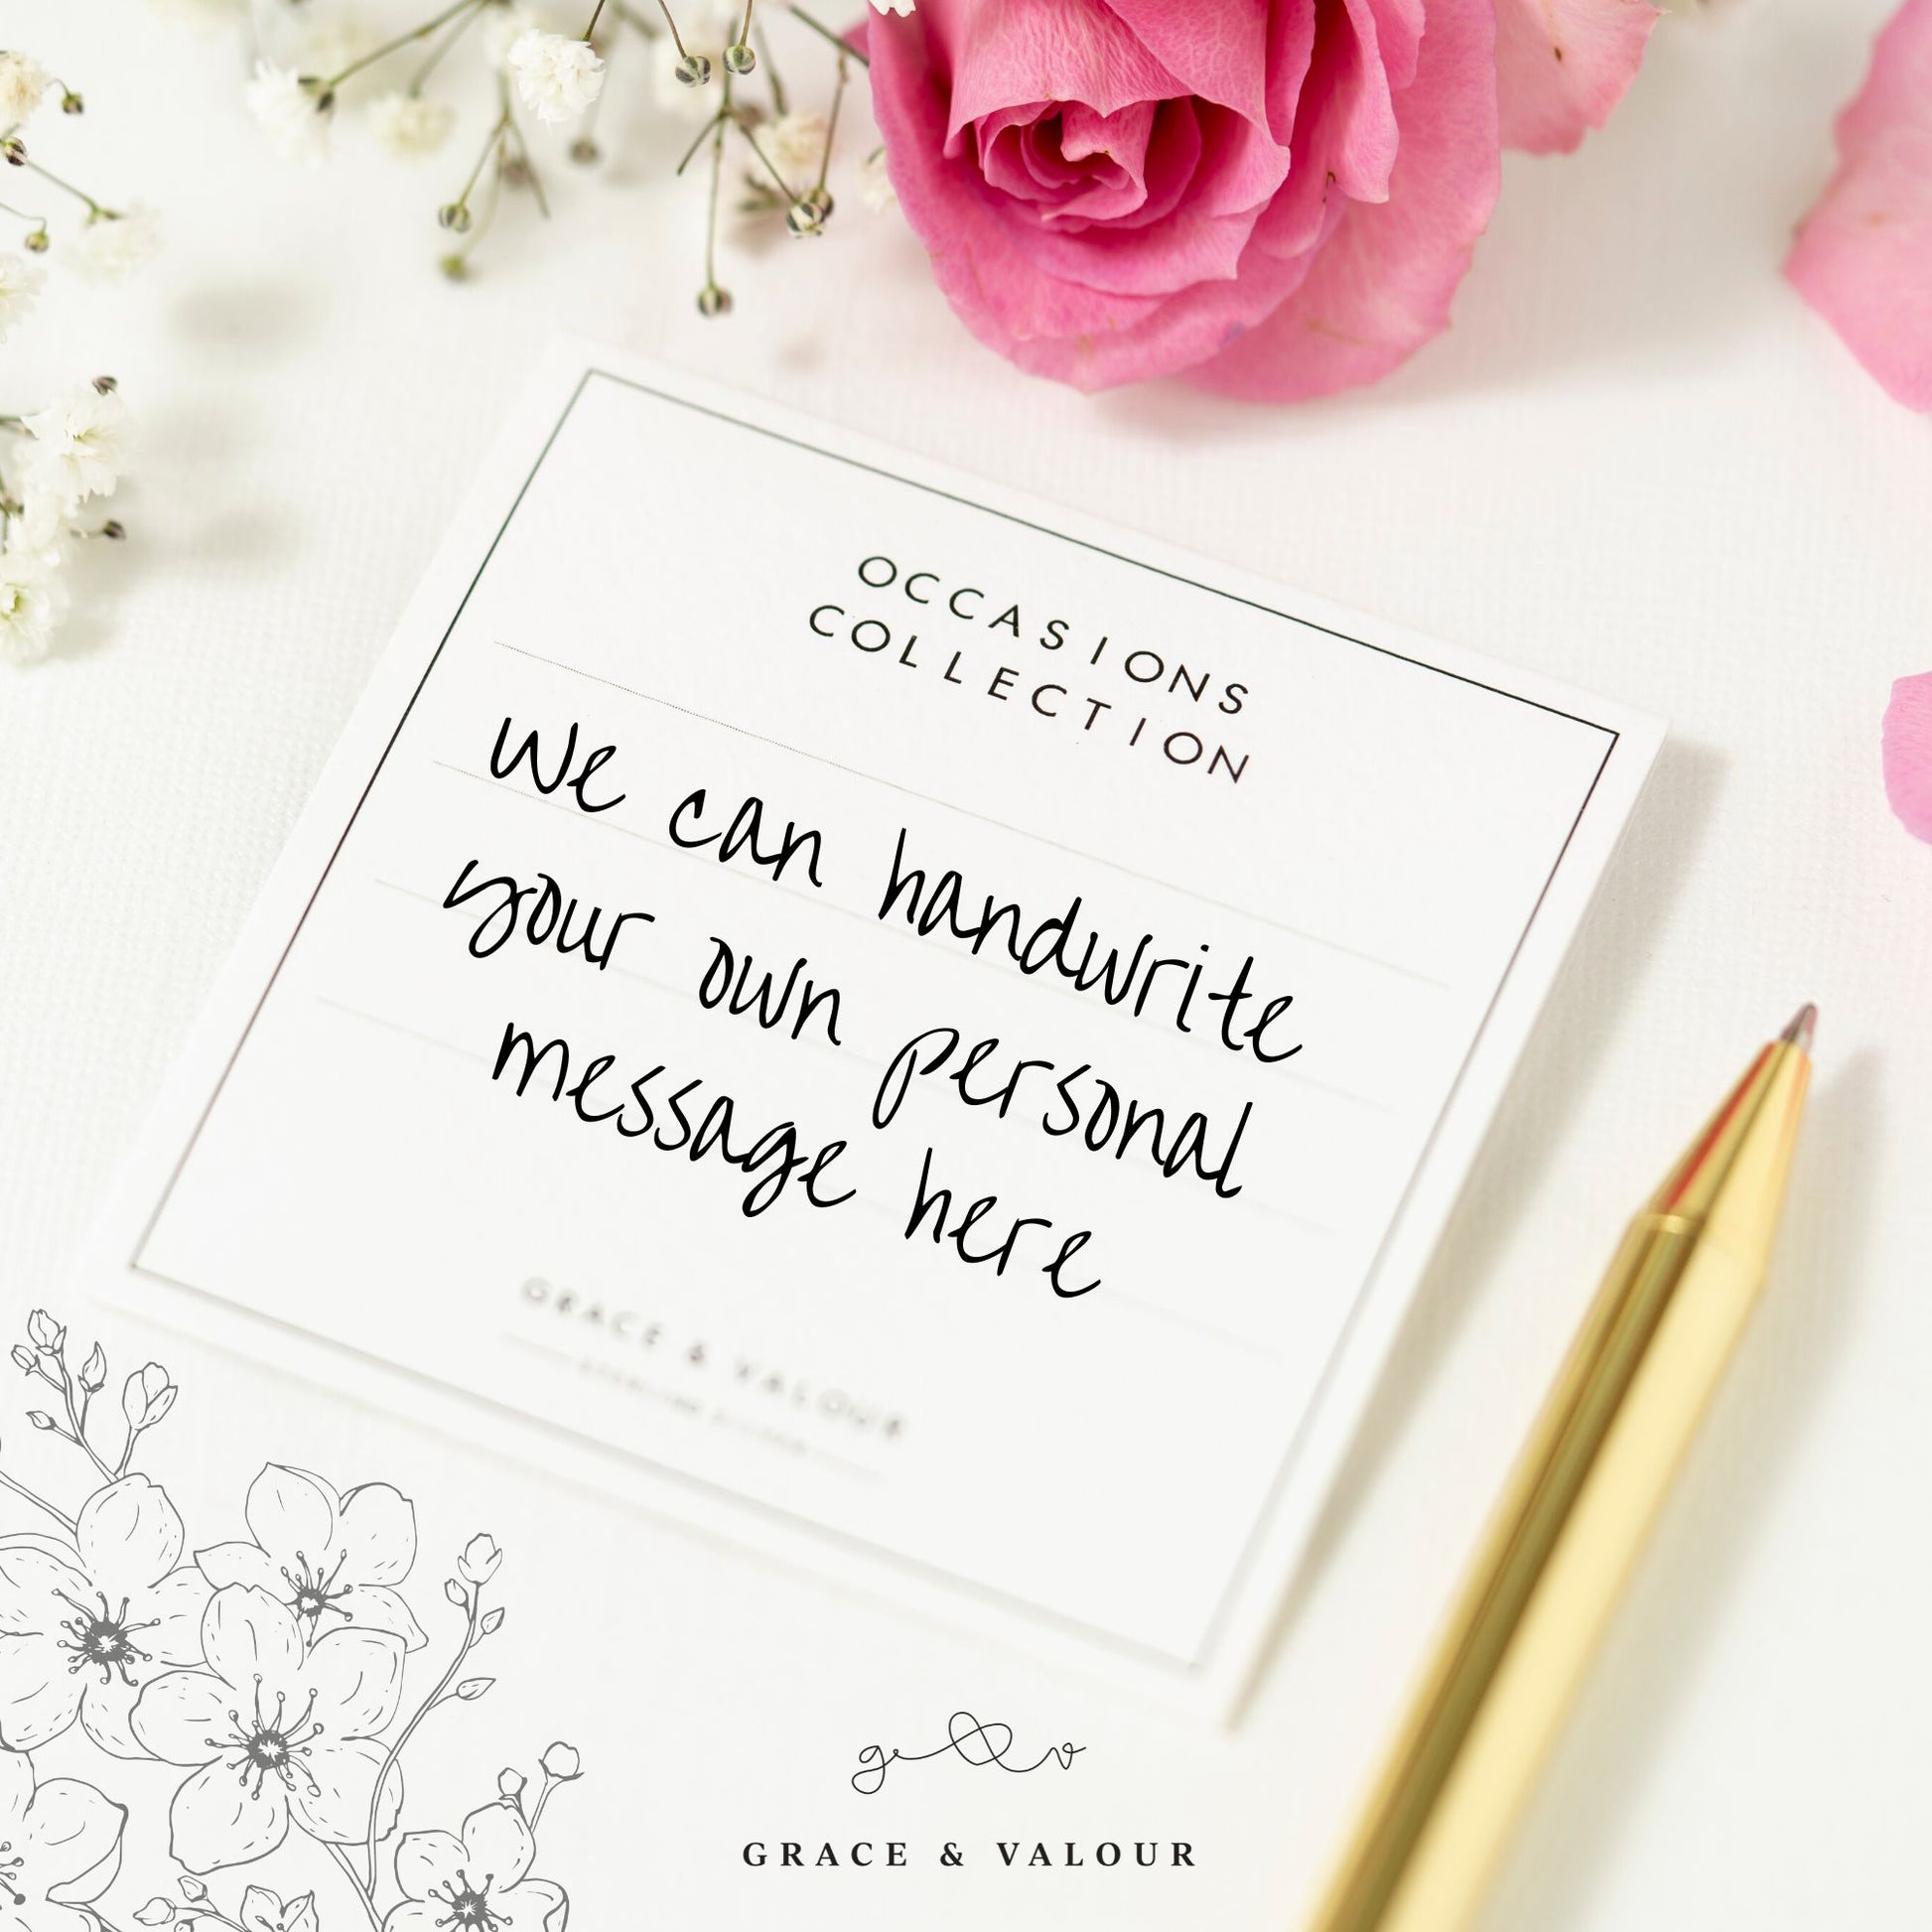 OCCASIONS
COLLECTION
We can handwrite
your own personal
message here
GRACE & VALOUR
g v
GRACE & VALOUR